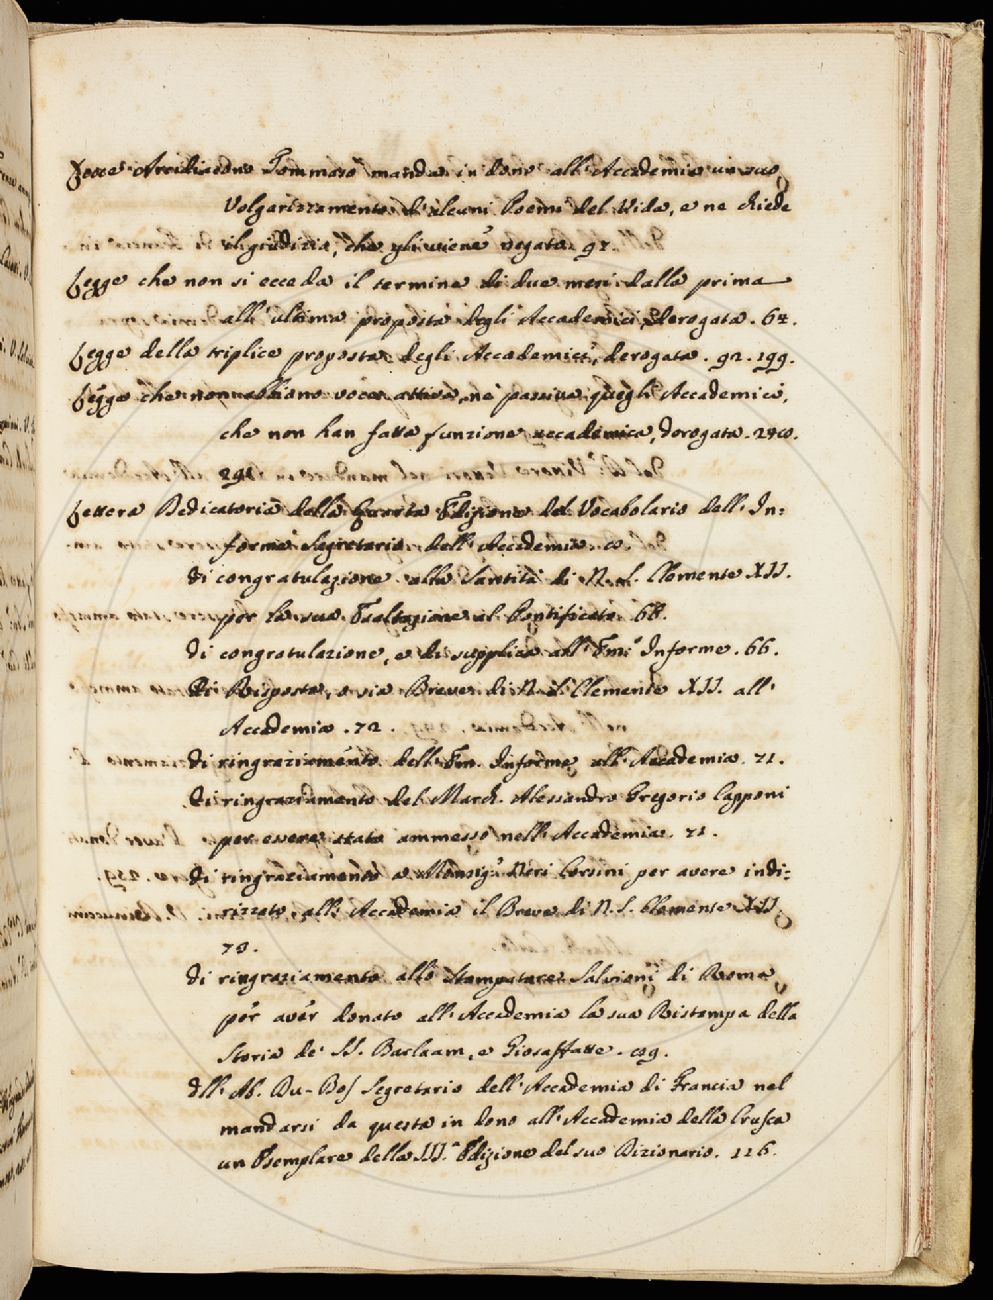 Lecce Arcidiacono Tommaso manda in dono all'Accademia un suo
Volgarizzamento d'alcuni Poemi del Vida, e ne chiede
il giudizio, che gli viene negato. 97.
Legge che non si ecceda il termine di due mesi dalla prima
all'ultima proposta degli Accademici, derogata. 64.
Legge della triplice proposta degli Accademici, derogata. 92. 199.
Legge che non abbiano voce attiva, nè passiva quegli Accademici,
che non han fatto funzione accademica, derogata.
Lettera Dedicatoria della Quarta Edizione del Vocabolario dell'In:
forme Segretario dell'Accademia.
di congratulazione alla Santità di N. S. Clemente XII.
per la sua Esaltazione al Pontificato. 68.
di congratulazione, e di supplica all'Em.º Informe. 66.
di Risposta, o sia Breve di N. S. Clemente XII. all'
Accademia. 72.
di ringraziamento dell'Em. Informe all'Accademia. 71.
di ringraziamento del March. Alessandro Gregorio Capponi
per essere stato ammesso nell'Accademia. 71.
di ringraziamento a Monsig.r Neri Corsini per avere indi:
rizzato all'Accademia il Breve di N. S. Clemente XII.
73.
di ringraziamento allo Stampatore Salvioni di Roma
per aver donato all'Accademia la sua Ristampa della
Storia de' SS. Barlaam, e Giosaffatte.
dell'Ab. Du-Bos Segretario dell'Accademia di Francia nel
mandarsi da questa in dono all'Accademia della Crusca
un Esemplare della III.ª Edizione del suo Dizionario. 116.